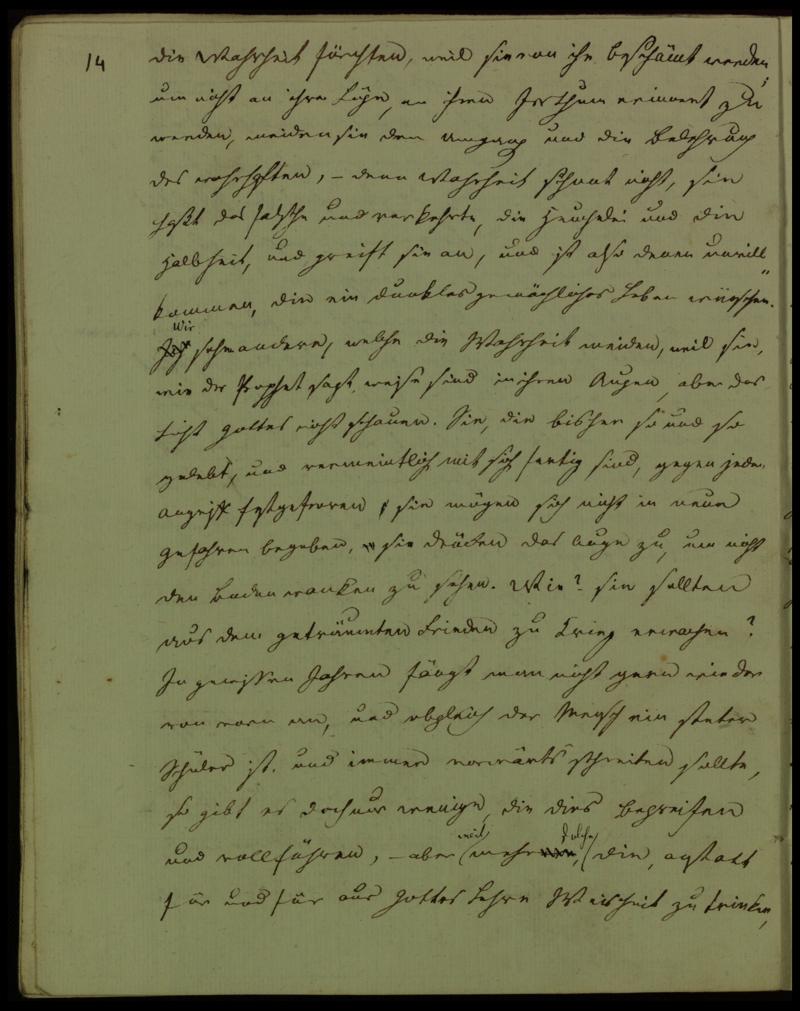 14
die Wahrheit fürchten, weil sie von ihr beschämt werden;
um nicht an ihre Lüge, an ihren Irrthum erinnert zu
werden, meiden sie den Umgang und die Belehrung
des wahrhaften, – denn Wahrheit schont nicht, sie
haßt das falsche und verkehrte, die Heuchelei und die
Halbheit, und greift sie an, und ist also denen unwill"
kommen, die ein dunkles gemächliches Leben wünschen.
Wir
sehn andere, welche die Wahrheit meiden, weil sie,
wie der Prophet sagt, weise sind in ihren Augen, aber das
Licht gottes nicht schauen. Sie, die bisher so und so
gelebt, und vermeintlich mit sich fertig sind, gegen jeden
angriff festgefroren, sie mögen sich nicht in neue
gefahren begeben, sie drücken das Auge zu, um nicht
den Boden wanken zu sehen. Wie? sie sollten
aus dem geträumten Frieden zu Krieg erwachen?
In gewissen Jahren fängt man nicht gern wieder
von vorn an, und obgleich der Mensch ein steter
Schüler ist, und immer vorwärts schreiten sollte,
so gibt es doch nur wenige, die dies begreifen
und vollführen, – aber weit mehr solche, die, anstatt
für und für aus Gottes Lehre Weisheit zu trinken,